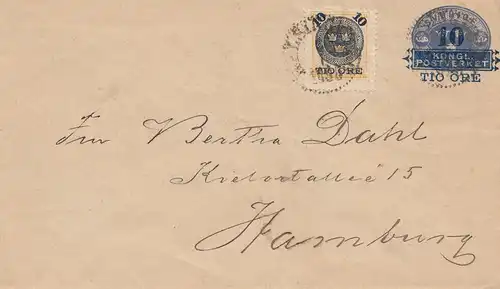 10 10
TIO ÖRE
10
KONGL.
POSTVERKET
TIO ÖRE
Frn Bertha Dahl
Kielortallée 15
Hamburg